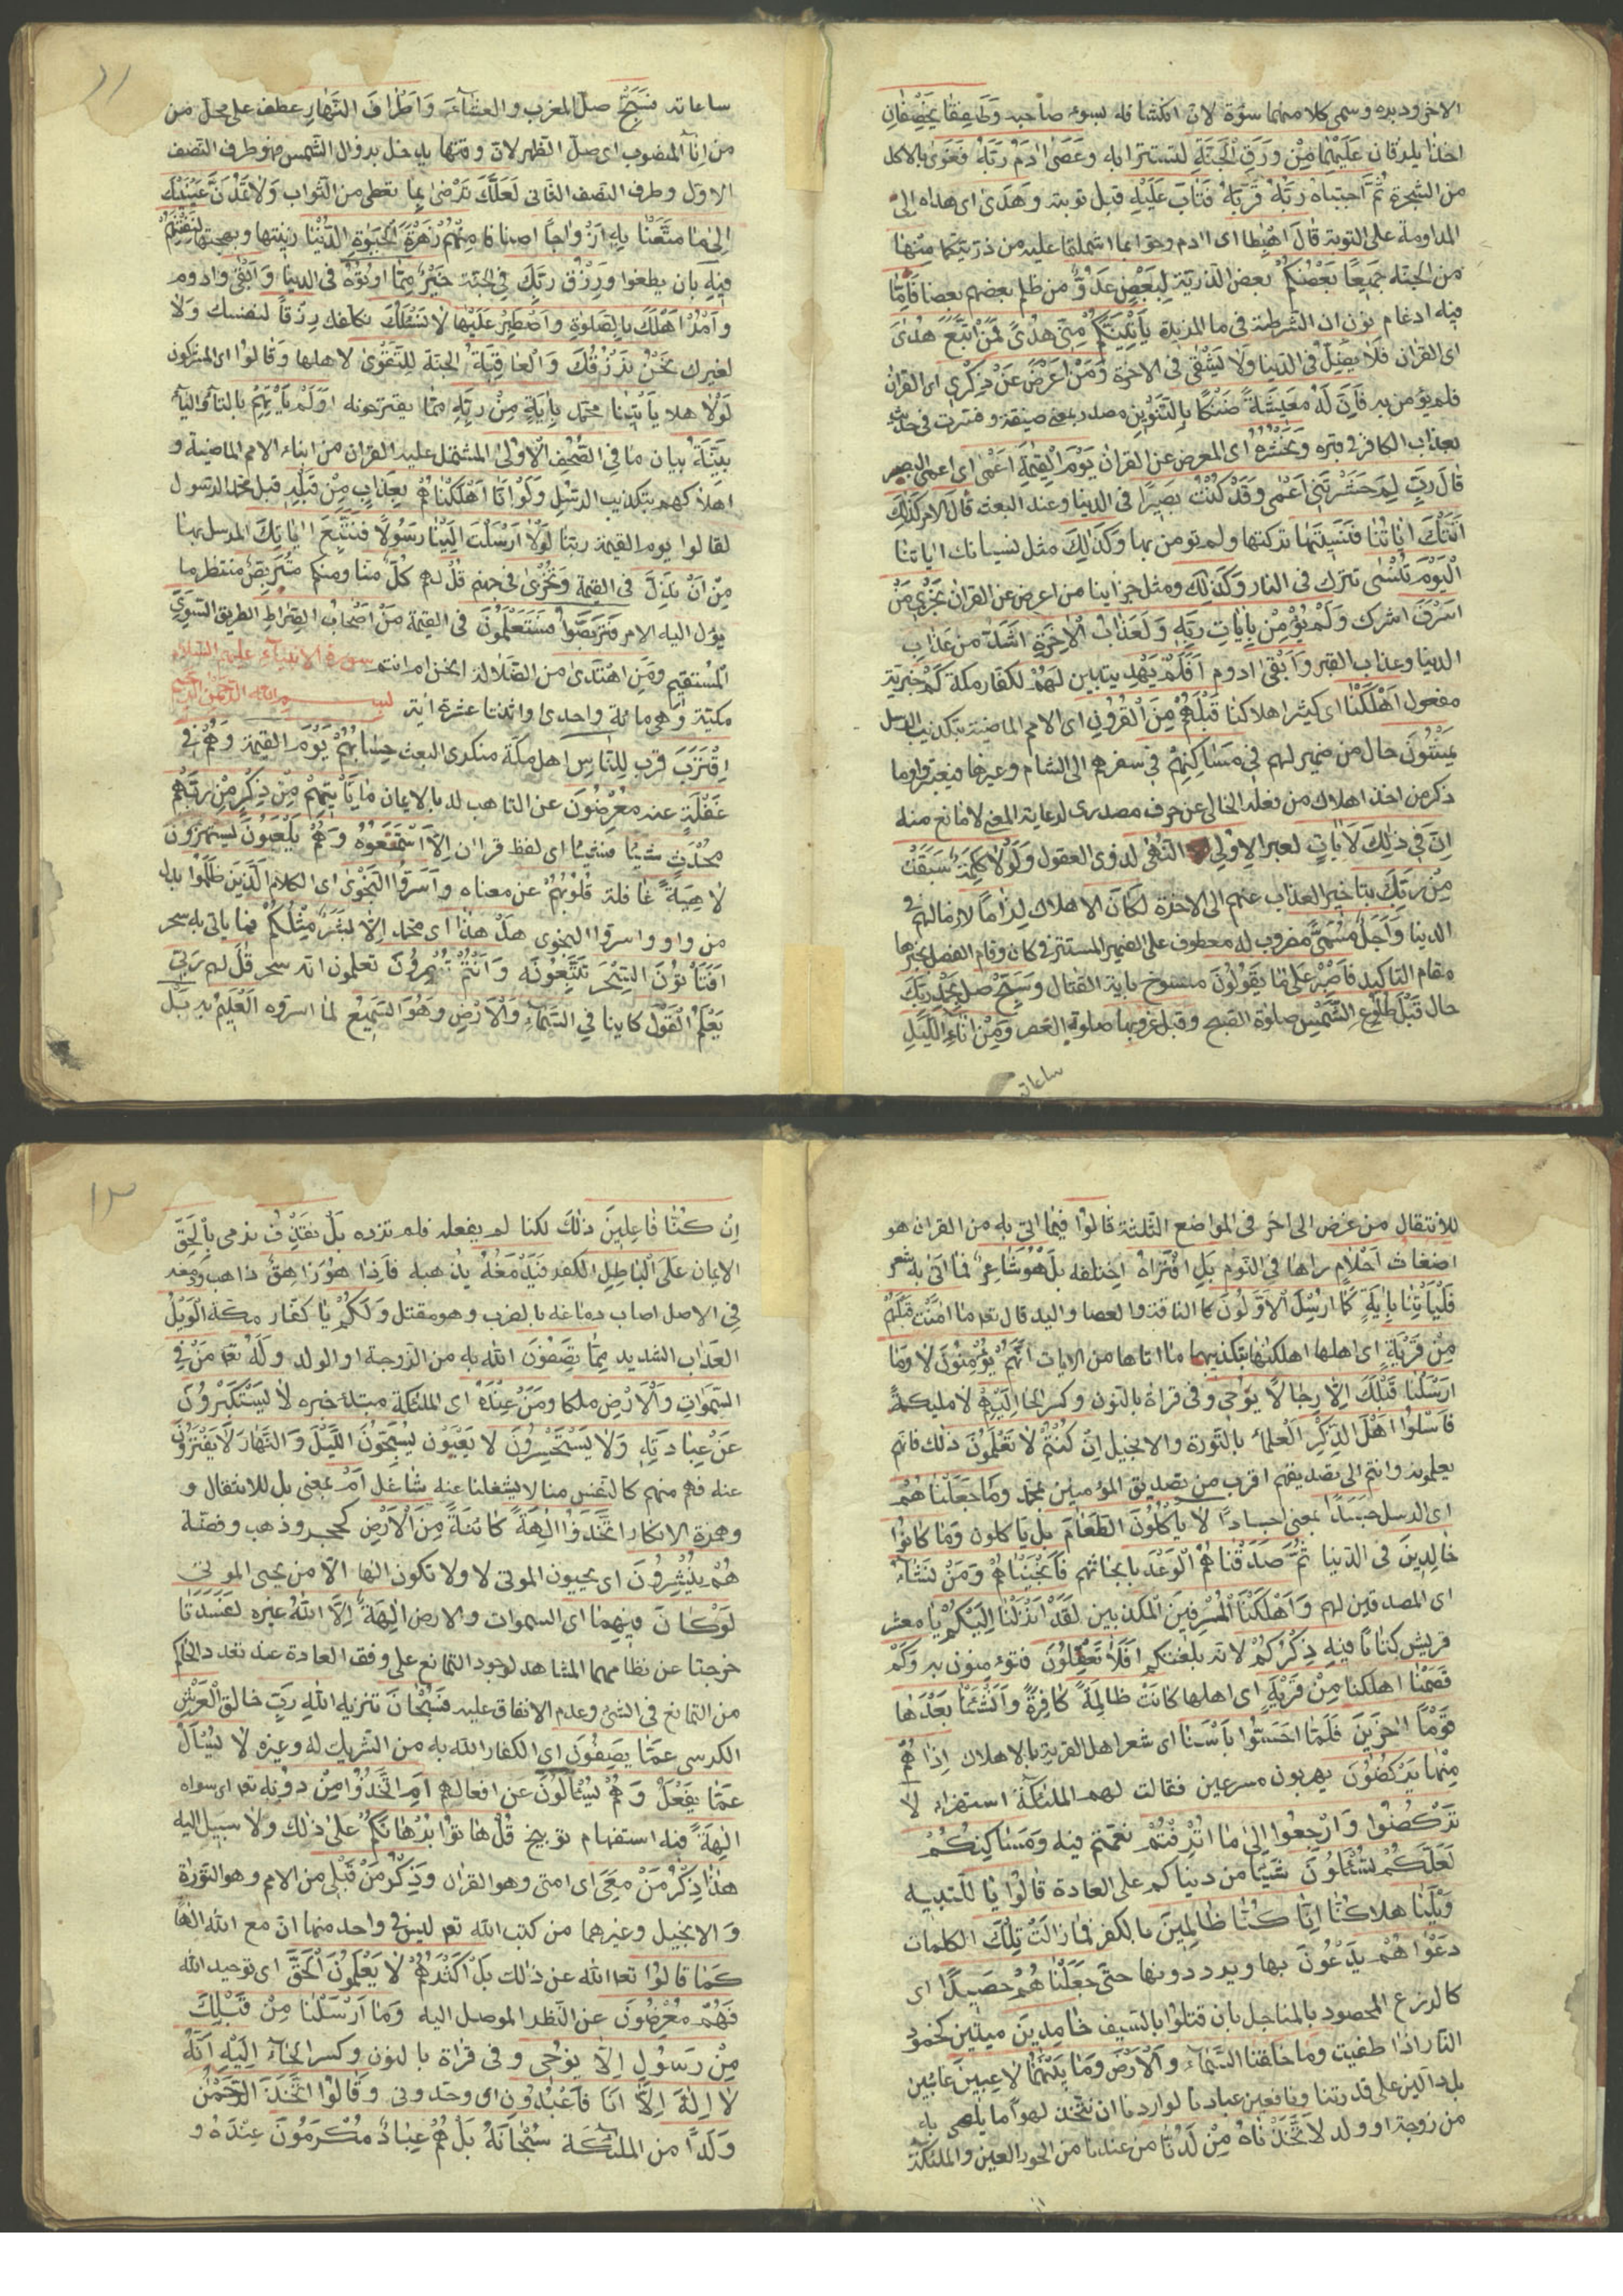 الاخر ودبره وسمى كلا منهما سوءة لان انكشافه يسوء صاحبه وَطَفِقَا يَخْصِفَانِ
اخذا يلزقان عَلَيْهِمَا مِنْ وَرَقِ الْجَنَّةِ ليستترا به وَعَصَى اٰدَمُ رَبَّهُ فَغَوَى بالاكل
من الشجرة ثُمَّ اجْتَبَاهُ رَبُّهُ قرّبه فَتَابَ عَلَيْهِ قبل توبته وَهَدَى اى هداه الى
المداومة على التوبة قَالَ اهْبِطَا اى اادم وحوا بما اشتملتما عليه من ذريتكما مِنْهَا
من الجنة جَمِيعًا بَعْضُكُمْ بعض الذرية لِبَعْضٍ عَدُوٌّ من ظلم بعضهم بعضا فَاِمَّا
فيه ادغام نون ان الشرطية فى ما المزيدة يَأْتِيَنَّكُمْ مِنِّي هُدًى فَمَنِ اتَّبَعَ هُدَىَ
اى القران فَلَا يَضِلُّ فى الدنيا وَلَا يَشْقَى فى الاخرة وَمَنْ اَعْرَضَ عَنْ ذِكْرِي اى القران
فلم يؤمن به فَاِنَّ لَهُ مَعِيشَةً ضَنْكًا بِالتَّنْوِينِ مصدر بمعنى ضيقة وفسرت فى حديث
بعذاب الكافر فى قبره وَنَحْشُرُهُ اى المعرض عن القران يَوْمَ الْقِيٰمَةِ اَعْمَى اى اعمى البصر
قَالَ رَبِّ لِمَ حَشَرْتَنِي اَعْمَى وَقَدْ كُنْتُ بَصِيرًا فى الدنيا وعند البعث قَالَ الامر كَذٰلِكَ
اَتَتْكَ اٰيَاتُنَا فَنَسِيتَهَا تركتها ولم تؤمن بها وَكَذٰلِكَ مثل نسيانك اياتنا
الْيَوْمَ تُنْسَى تترك فى النار وَكَذٰلِكَ ومثل جزاينا من اعرض عن القران نَجْزِي مَنْ
اَسْرَفَ اشرك وَلَمْ يُؤْمِنْ بِاٰيَاتِ رَبِّهِ وَلَعَذَابُ الْاٰخِرَةِ اَشَدُّ من عذاب
الدنيا وعذاب القبر وَاَبْقَى ادوم اَفَلَمْ يَهْدِ يتبين لَهُمْ لكفار مكة كَمْ خبرية
مفعول اَهْلَكْنَا اى كثيرا اهلاكنا قَبْلَهُمْ مِنَ الْقُرُونِ اى الامم الماضية بتكذيب الرسل
يَمْشُونَ حال من ضمير لهم فِي مَسَاكِنِهِمْ فى سفرهم الى الشام وغيرها فيعتبروا وما
ذكر من اخذ اهلاك من فعله الخالى عن حرف مصدرى لرعاية المعنى لا مانع منه
اِنَّ فِي ذٰلِكَ لَاٰيَاتٍ لعبرا لِاُولِي النُّهَى لذوى العقول وَلَوْلَا كَلِمَةٌ سَبَقَتْ
مِنْ رَبِّكَ بتاخير العذاب عنهم الى الاخرة لَكَانَ الاهلاك لِزَامًا لازما لهم فى
الدنيا وَاَجَلٌ مُسَمًّى مضروب له معطوف على الضمير المستتر فى كان وقام الفصل بخبرها
مقام التاكيد فَاصْبِرْ عَلَى مَا يَقُولُونَ منسوخ باية القتال وَسَبِّحْ صل بِحَمْدِ رَبِّكَ
حال قَبْلَ طُلُوعِ الشَّمْسِ صلوة الصبح وَقَبْلَ غُرُوبِهَا صلوة العصر وَمِنْ اٰنَاءِ اللَّيْلِ
ساعاته
١١
ساعاته فَسَبِّحْ صل المغرب والعشاء وَاَطْرَافَ النَّهَارِ عطف على محل من
من اناء المنصوب اى صل الظهر لان وقتها يدخل بزوال الشمس فهو طرف النصف
الاول وطرف النصف الثانى لَعَلَّكَ تَرْضَى بما تعطى من الثواب وَلَا تَمُدَّنَّ عَيْنَيْكَ
اِلَى مَا مَتَّعْنَا بِهِ اَزْوَاجًا اصنافا مِنْهُمْ زَهْرَةَ الْحَيٰوةِ الدُّنْيَا زينتها وبهجتها لِنَفْتِنَهُمْ
فِيهِ بان يطغوا وَرِزْقُ رَبِّكَ فى الجنة خَيْرٌ مما اوتوه فى الدنيا وَاَبْقَى وادوم
وَأْمُرْ اَهْلَكَ بِالصَّلٰوةِ وَاصْطَبِرْ عَلَيْهَا لَا نَسْئَلُكَ نكلفك رِزْقًا لنفسك ولا
لغيرك نَحْنُ نَرْزُقُكَ وَالْعَاقِبَةُ الجنة لِلتَّقْوَى لاهلها وَقَالُوا اى المشركون
لَوْلَا هلا يَأْتِينَا محمد بِاٰيَةٍ مِنْ رَبِّهِ مما يقترحونه اَوَلَمْ يَأْتِهِمْ بالتاء والياء
بَيِّنَةُ بيان مَا فِي الصُّحُفِ الْاُولَى المشتمل عليه القران من انباء الامم الماضية و
اهلاكهم بتكذيب الرسل وَلَوْ اَنَّا اَهْلَكْنَاهُمْ بِعَذَابٍ مِنْ قَبْلِهِ قبل محمد الرسول
لَقَالُوا يوم القيمة رَبَّنَا لَوْلَا اَرْسَلْتَ اِلَيْنَا رَسُولًا فَنَتَّبِعَ اٰيَاتِكَ المرسل بها
مِنْ اَنْ نَذِلَّ فى القيمة وَنَخْزَى فى جهنم قُلْ لهم كُلٌّ منا ومنكم مُتَرَبِّصٌ منتظر ما
يؤل اليه الامر فَتَرَبَّصُوا فَسَتَعْلَمُونَ فى القيمة مَنْ اَصْحَابُ الصِّرَاطِ الطريق السَّوِيِّ
المستقيم وَمَنِ اهْتَدَى من الضلالة انحن ام انتم سورة الانبياء عليهم السلام
مكية وهى مائة واحدى واثنتا عشرة اية بسم الله الرحمن الرحيم
اِقْتَرَبَ قرب لِلنَّاسِ اهل مكة منكرى البعث حِسَابُهُمْ يوم القيمة وَهُمْ فِي
غَفْلَةٍ عنه مُعْرِضُونَ عن التاهب له بالايمان مَا يَأْتِيهِمْ مِنْ ذِكْرٍ مِنْ رَبِّهِمْ
مُحْدَثٍ شيئا فشيئا اى لفظ قراان اِلَّا اسْتَمَعُوهُ وَهُمْ يَلْعَبُونَ يستهزؤن
لَاهِيَةً غافلة قُلُوبُهُمْ عن معناه وَاَسَرُّوا النَّجْوَى اى الكلام الَّذِينَ ظَلَمُوا بدل
من واو واسروا النجوى هَلْ هٰذَا اى محمد اِلَّا بَشَرٌ مِثْلُكُمْ فما ياتى به سحر
اَفَتَأْتُونَ السِّحْرَ تتبعونه وَاَنْتُمْ تُبْصِرُونَ تعلمون انه سحر قُلْ لهم رَبِّي
يَعْلَمُ الْقَوْلَ كاينا فِي السَّمَاءِ وَالْاَرْضِ وَهُوَ السَّمِيعُ لما اسروه الْعَلِيمُ به بَلْ
للانتقال من غرض الى اخر فى المواضع الثلثة قَالُوا فيما اتى به من القران هو
اَضْغَاثُ اَحْلَامٍ راها فى النوم بَلِ افْتَرَاهُ اختلقه بَلْ هُوَ شَاعِرٌ فما اتى به شعر
فَلْيَأْتِنَا بِاٰيَةٍ كَمَا اُرْسِلَ الْاَوَّلُونَ كالناقة والعصا واليد قال تعم مَا اٰمَنَتْ قَبْلَهُمْ
مِنْ قَرْيَةٍ اى اهلها اَهْلَكْنَاهَا بتكذيبها ما اتاها من الايات اَفَهُمْ يُؤْمِنُونَ لا وَمَا
اَرْسَلْنَا قَبْلَكَ اِلَّا رِجَالًا يُوحَى وفى قراة بالنون وكسر الحا اِلَيْهِمْ لا مليكة
فَاسْئَلُوا اَهْلَ الذِّكْرِ العلماء بالتورة والانجيل اِنْ كُنْتُمْ لَا تَعْلَمُونَ ذلك فانهم
يعلمونه وانتم الى تصديقهم اقرب من تصديق المؤمنين بمحمد وَمَا جَعَلْنَاهُمْ
اى الرسل جَسَدًا بمعنى اجسادا لَا يَأْكُلُونَ الطَّعَامَ بل ياكلون وَمَا كَانُوا
خَالِدِينَ فى الدنيا ثُمَّ صَدَقْنَاهُمُ الْوَعْدَ بانجائهم فَاَنْجَيْنَاهُمْ وَمَنْ نَشَاءُ
اى المصدقين لهم وَاَهْلَكْنَا الْمُسْرِفِينَ المكذبين لَقَدْ اَنْزَلْنَا اِلَيْكُمْ يا معشر
قريش كِتَابًا فِيهِ ذِكْرُكُمْ لانه بلغتكم اَفَلَا تَعْقِلُونَ فتؤمنون به وَكَمْ
قَصَمْنَا اهلكنا مِنْ قَرْيَةٍ اى اهلها كَانَتْ ظَالِمَةً كافرة وَاَنْشَأْنَا بَعْدَهَا
قَوْمًا اٰخَرِينَ فَلَمَّا اَحَسُّوا بَأْسَنَا اى شعر اهل القرية بالاهلاك اِذَا هُمْ
مِنْهَا يَرْكُضُونَ يهربون مسرعين فقالت لهم الملئكة استهزاء لَا
تَرْكُضُوا وَارْجِعُوا اِلَى مَا اُتْرِفْتُمْ نعمتم فِيهِ وَمَسَاكِنِكُمْ
لَعَلَّكُمْ تُسْئَلُونَ شيئا من دنياكم على العادة قَالُوا يَا للتنبيه
وَيْلَنَا هلاكنا اِنَّا كُنَّا ظَالِمِينَ بالكفر فَمَا زَالَتْ تِلْكَ الكلمات
دَعْوَاهُمْ يدعون بها ويرددونها حَتَّى جَعَلْنَاهُمْ حَصِيدًا اى
كالزرع المحصود بالمناجل بان قتلوا بالسيف خَامِدِينَ ميتين كخمود
النار اذا طفيت وَمَا خَلَقْنَا السَّمَاءَ وَالْاَرْضَ وَمَا بَيْنَهُمَا لَاعِبِينَ عابثين
بل دالين على قدرتنا ونافعين عبادنا لَوْ اَرَدْنَا اَنْ نَتَّخِذَ لَهْوًا ما يلهى به
من زوجة او ولد لَاتَّخَذْنَاهُ مِنْ لَدُنَّا من عندنا من الحور العين والملئكة
١٢
اِنْ كُنَّا فَاعِلِينَ ذلك لكنا لم يفعله فلم نرده بَلْ نَقْذِفُ نرمى بِالْحَقِّ
الايمان عَلَى الْبَاطِلِ الكفر فَيَدْمَغُهُ يذهبه فَاِذَا هُوَ زَاهِقٌ ذاهب ودمغه
فى الاصل اصاب دماغه بالضرب وهو مقتل وَلَكُمْ يا كفار مكة الْوَيْلُ
العذاب الشديد مِمَّا تَصِفُونَ الله به من الزوجة او الولد وَلَهُ تعم مَنْ فِي
السَّمٰوَاتِ وَالْاَرْضِ ملكا وَمَنْ عِنْدَهُ اى الملئكة مبتدء خبره لَا يَسْتَكْبِرُونَ
عَنْ عِبَادَتِهِ وَلَا يَسْتَحْسِرُونَ لا يعيون يُسَبِّحُونَ اللَّيْلَ وَالنَّهَارَ لَا يَفْتُرُونَ
عنه فهو منهم كالنفس منا لا يشغلنا عنه شاغل اَمْ بمعنى بل للانتقال و
وهمزة الانكار اتَّخَذُوا اٰلِهَةً كائنة مِنَ الْاَرْضِ كحجر وذهب وفضة
هُمْ يُنْشِرُونَ اى يحييون الموتى لا ولا تكون الها الا من يحيى الموتى
لَوْ كَانَ فِيهِمَا اى السموات والارض اٰلِهَةٌ اِلَّا اللّٰهُ غيره لَفَسَدَتَا
خرجتا عن نظامهما المشاهد لوجود التمانع على وفق العادة عند تعدد الحاكم
من التمانع فى الشئ وعدم الاتفاق عليه فَسُبْحَانَ تنزيه اللّٰهِ رَبِّ خالق الْعَرْشِ
الكرسى عَمَّا يَصِفُونَ اى الكفار الله به من الشريك له وغيره لَا يُسْئَلُ
عَمَّا يَفْعَلُ وَهُمْ يُسْئَلُونَ عن افعالهم اَمِ اتَّخَذُوا مِنْ دُونِهِ تعم اى سواه
اٰلِهَةً فيه استفهام توبيخ قُلْ هَاتُوا بُرْهَانَكُمْ على ذلك ولا سبيل اليه
هٰذَا ذِكْرُ مَنْ مَعِيَ اى امتى وهو القران وَذِكْرُ مَنْ قَبْلِي من الامم وهو التورٰة
والانجيل وغيرهما من كتب الله تعم ليس فى واحد منها ان مع الله الها
كما قالوا تعم الله عن ذلك بَلْ اَكْثَرُهُمْ لَا يَعْلَمُونَ الْحَقَّ اى توحيد الله
فَهُمْ مُعْرِضُونَ عن النظر الموصل اليه وَمَا اَرْسَلْنَا مِنْ قَبْلِكَ
مِنْ رَسُولٍ اِلَّا يُوحَى وفى قراة بالنون وكسر الحاء اِلَيْهِ اَنَّهُ
لَا اِلٰهَ اِلَّا اَنَا فَاعْبُدُونِ اى وحدونى وَقَالُوا اتَّخَذَ الرَّحْمٰنُ
وَلَدًا من الملئكة سُبْحَانَهُ بَلْ هُمْ عِبَادٌ مُكْرَمُونَ عنده و